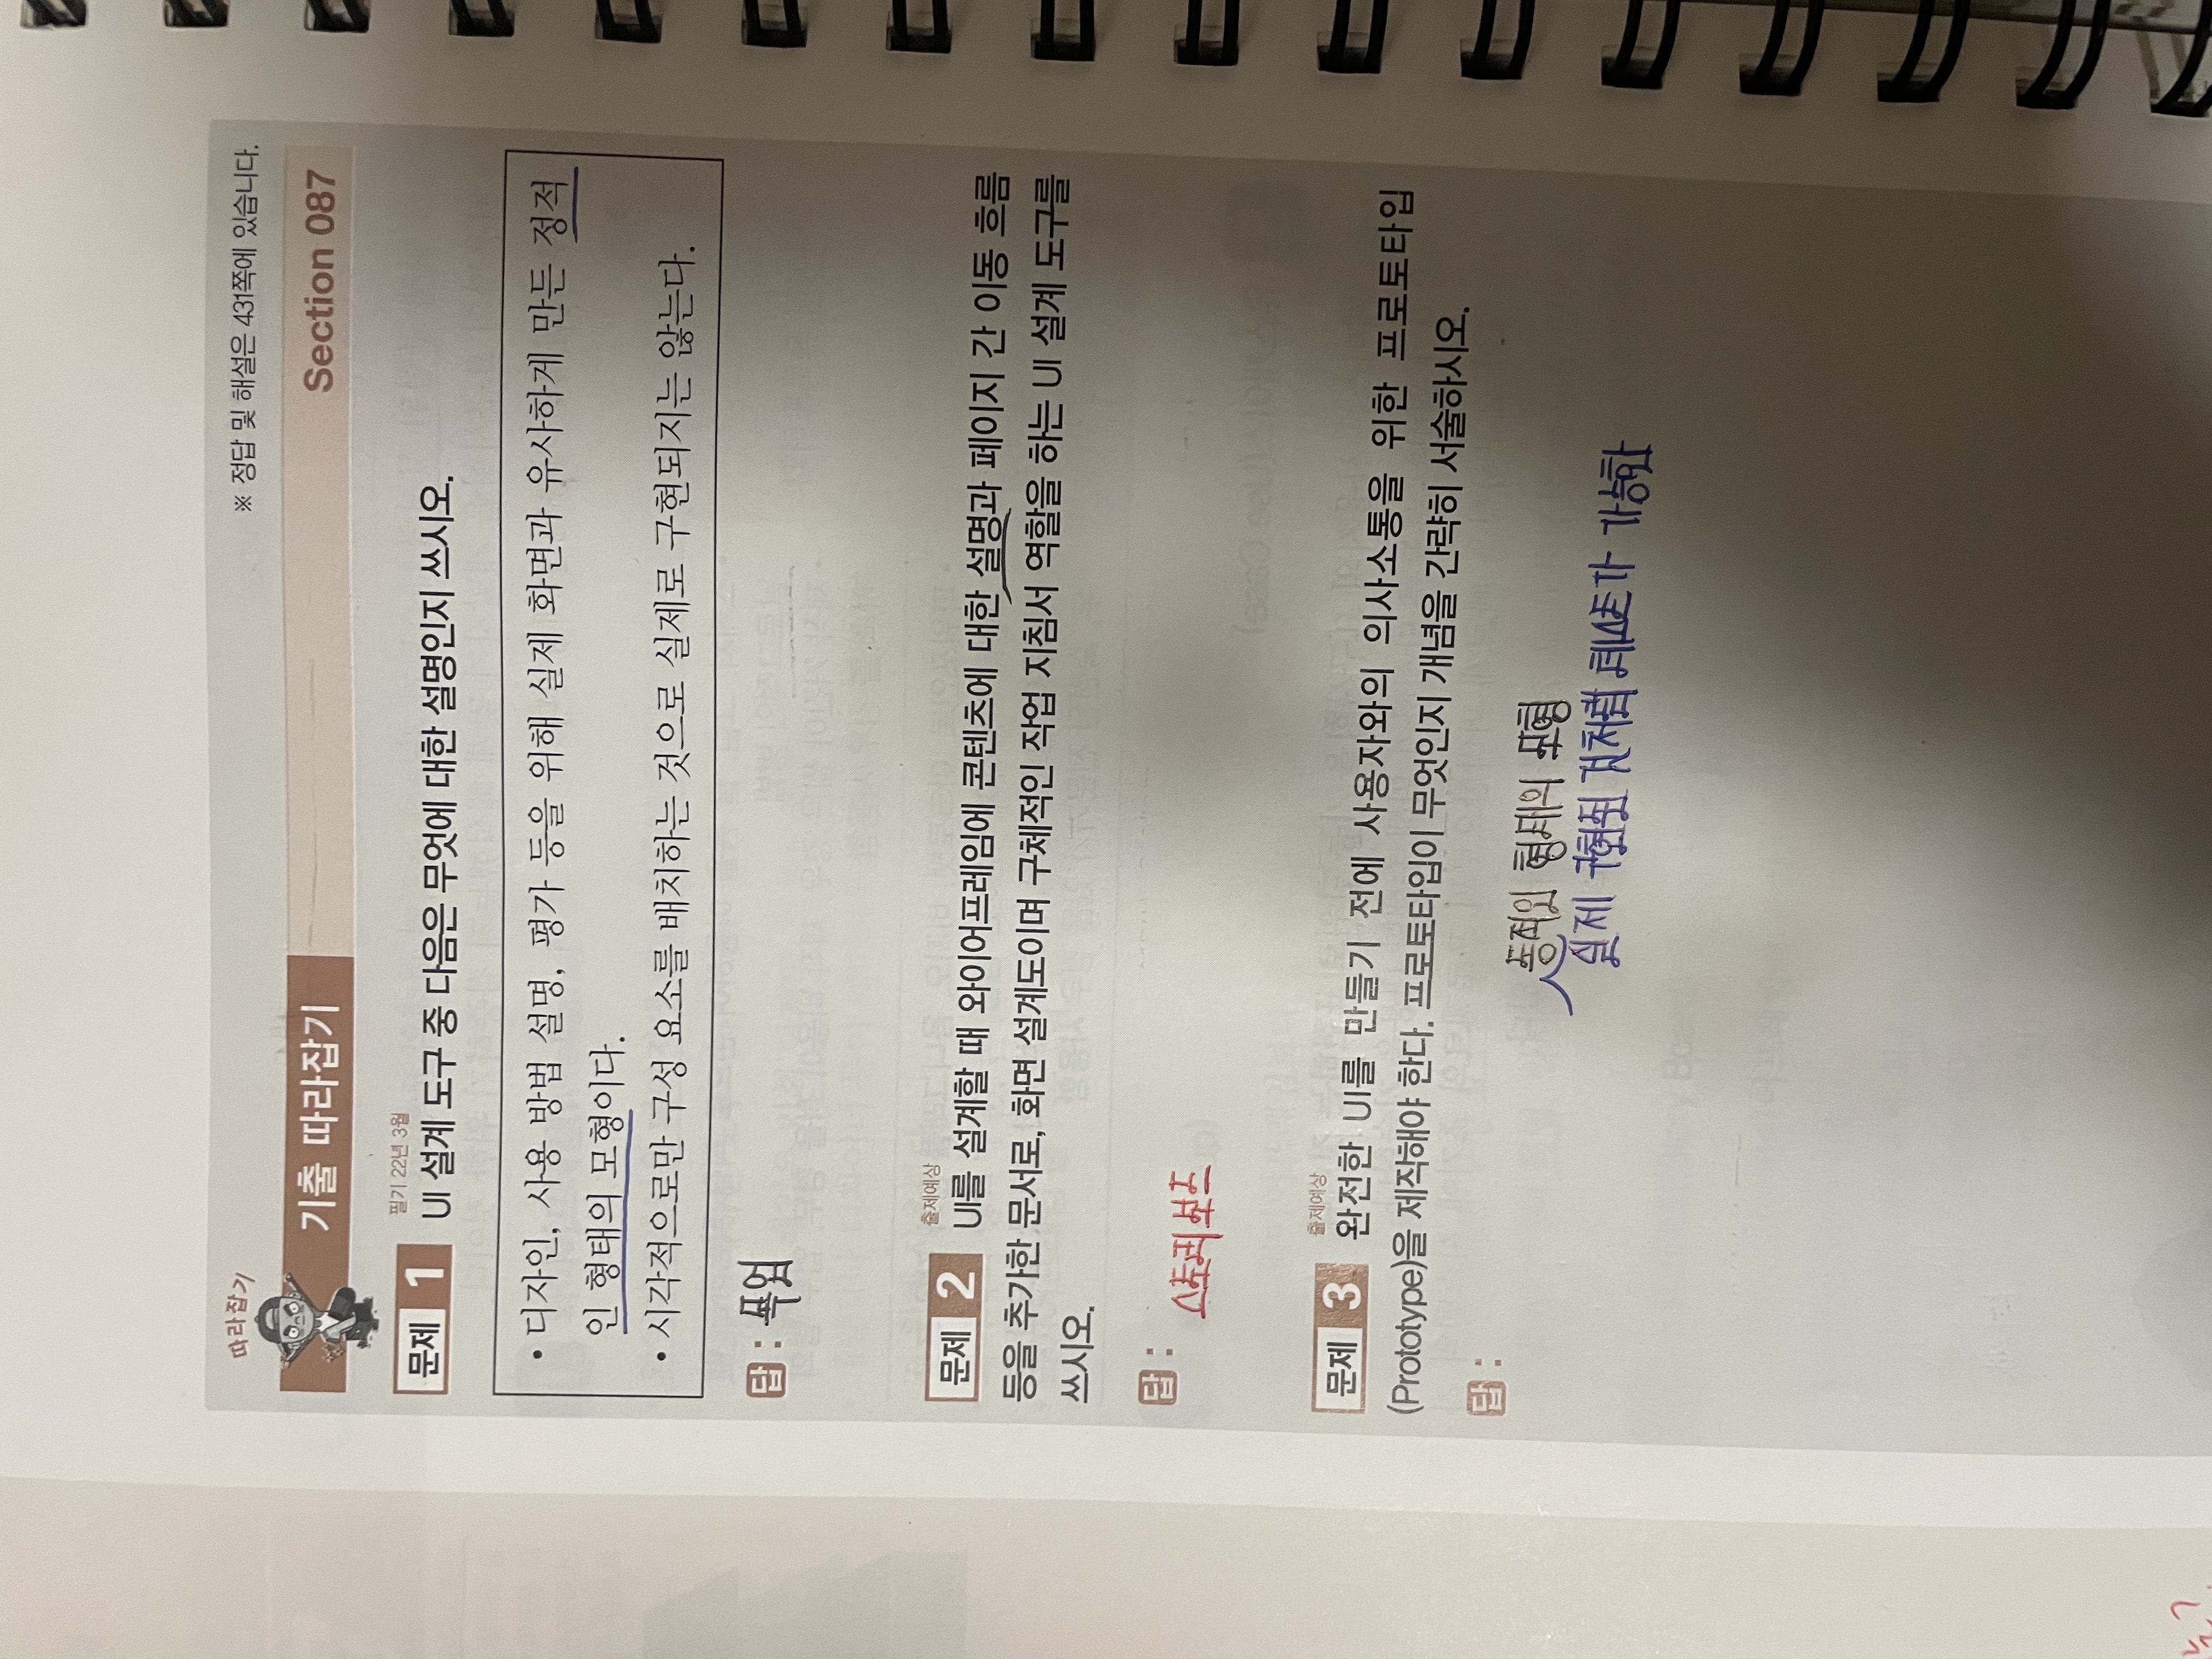 따라잡기
※ 정답 및 해설은 431쪽에 있습니다.
기출 따라잡기
Section 087
필기 22년 3월
문제 1 UI 설계 도구 중 다음은 무엇에 대한 설명인지 쓰시오.
• 디자인, 사용 방법 설명, 평가 등을 위해 실제 화면과 유사하게 만든 정적
인 형태의 모형이다.
• 시각적으로만 구성 요소를 배치하는 것으로 실제로 구현되지는 않는다.
답 : 목업
출제예상
문제 2 UI를 설계할 때 와이어프레임에 콘텐츠에 대한 설명과 페이지 간 이동 흐름
등을 추가한 문서로, 화면 설계도이며 구체적인 작업 지침서 역할을 하는 UI 설계 도구를
쓰시오.
답 :
스토리보드
출제예상
문제 3 완전한 UI를 만들기 전에 사용자와의 의사소통을 위한 프로토타입
(Prototype)을 제작해야 한다. 프로토타입이 무엇인지 개념을 간략히 서술하시오.
답 :
동적인 형태의 모형
실제 구현된 것처럼 테스트가 가능한